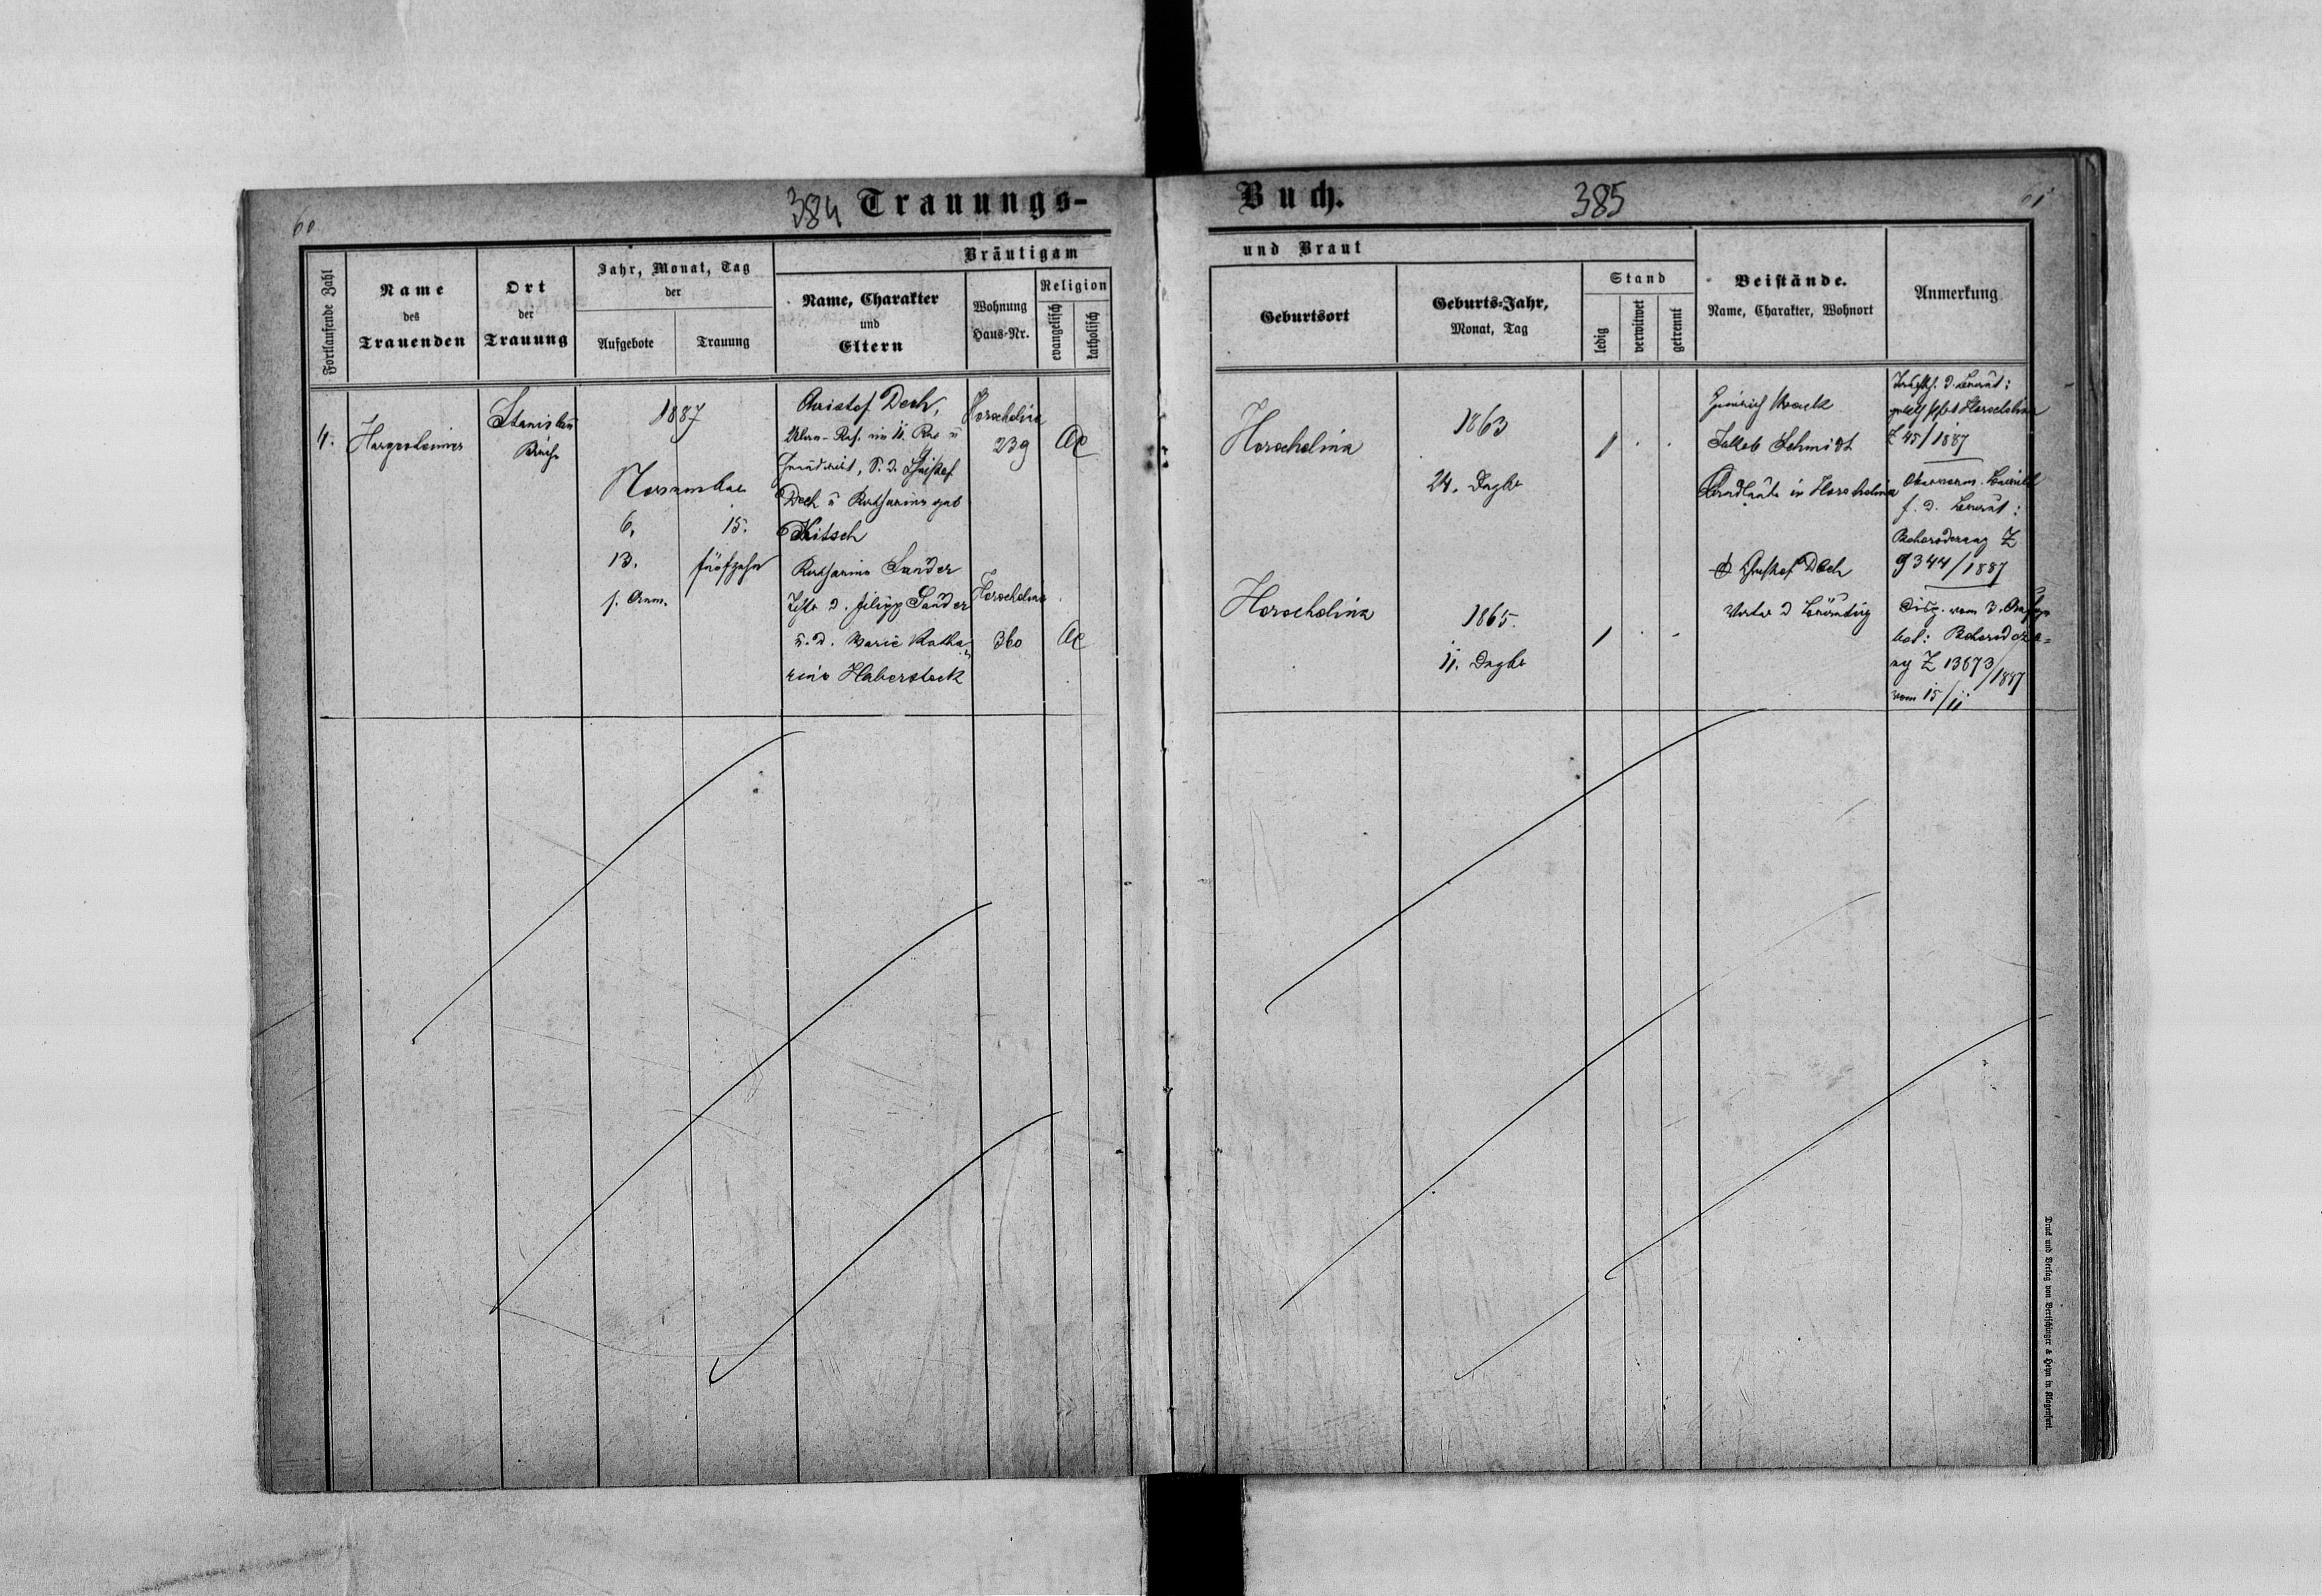 60
384 Trauungs-
Fortlaufende Zahl
Name
des
Trauenden
Ort
der
Trauung
Jahr, Monat, Tag
der
Aufgebote
Trauung
Bräutigam
Name, Charakter
und
Eltern
Wohnung
Haus-Nr.
Religion
evangelisch
katholisch
4.
Stanislau
1887
November
6.
15.
13.
fünfzehn
s. Anm.
Christof Dech,
S. d. Christof
Dech u Katharine geb
Kitsch
Horocholina
239
AC
Katharina Sander
d. Filipp Sander
u. d. Marie Katha-
rina Haberstock
Horocholina
360
AC
Buch.
385
61
und Braut
Geburtsort
Geburts-Jahr,
Monat, Tag
Stand
ledig
verwitwet
getrennt
Beistände.
Name, Charakter, Wohnort
Anmerkung
Horocholina
1863
24. Dezbr
1
Heinrich
Schmidt
Landleute in Horocholina
Horocholina
Z 45/1887
f. d. Braut:
Bohorodczany Z
9344/1887
Horocholina
1865.
11. Dezbr
1
Christof Dech
Vater d Bräutig
Disp. vom 3. Aufge
bot: Bohorodcza=
ny Z 13673/1887
vom 15/11
Druck und Verlag von Bertschinger & Heyn in Klagenfurt.